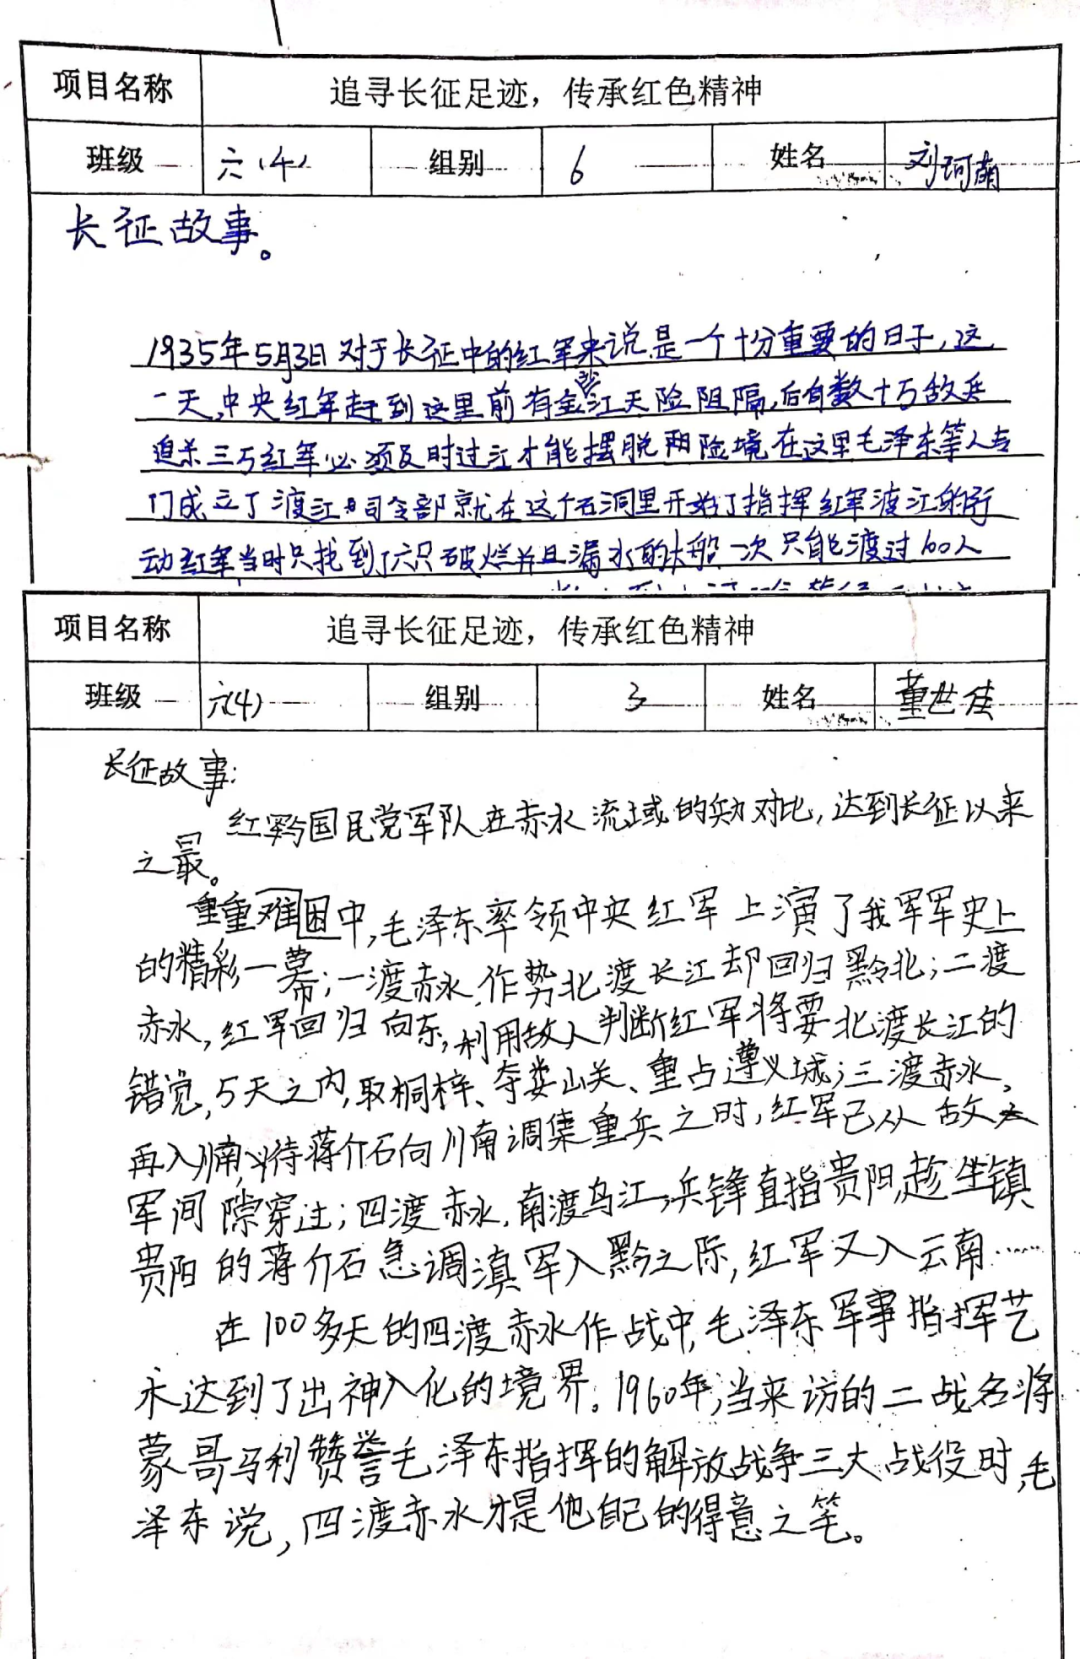 项目名称 追寻长征足迹，传承红色精神
班级 六(4) 组别 6 姓名 刘珂萌
长征故事。
1935年5月3日对于长征中的红军来说是一个十分重要的日子,这
一天,中央红军赶到这里前有金沙江天险阻隔,后有数十万敌兵
追杀三万红军必须及时过江才能摆脱险境在这里毛泽东等人专
门成立了渡江司令部就在这个石洞里开始了指挥红军渡江的行
动红军当时只找到了六只破烂并且漏水的大船一次只能渡过60人
项目名称 追寻长征足迹，传承红色精神
班级 六(4) 组别 3 姓名 董世佳
长征故事:
红军与国民党军队在赤水流域的兵力对比,达到长征以来
之最。
重重难困中,毛泽东率领中央红军上演了我军军史上
的精彩一幕;一渡赤水,作势北渡长江却回归黔北;二渡
赤水,红军回归向东,利用敌人判断红军将要北渡长江的
错觉,5天之内,取桐梓、夺娄山关、重占遵义城;三渡赤水,
再入川南,待蒋介石向川南调集重兵之时,红军已从敌
军间隙穿过;四渡赤水,南渡乌江,兵锋直指贵阳,趁坐镇
贵阳的蒋介石急调滇军入黔之际,红军又入云南……
在100多天的四渡赤水作战中,毛泽东军事指挥艺
术达到了出神入化的境界。1960年,当来访的二战名将
蒙哥马利赞誉毛泽东指挥的解放战争三大战役时,毛
泽东说,四渡赤水才是他自己的得意之笔。